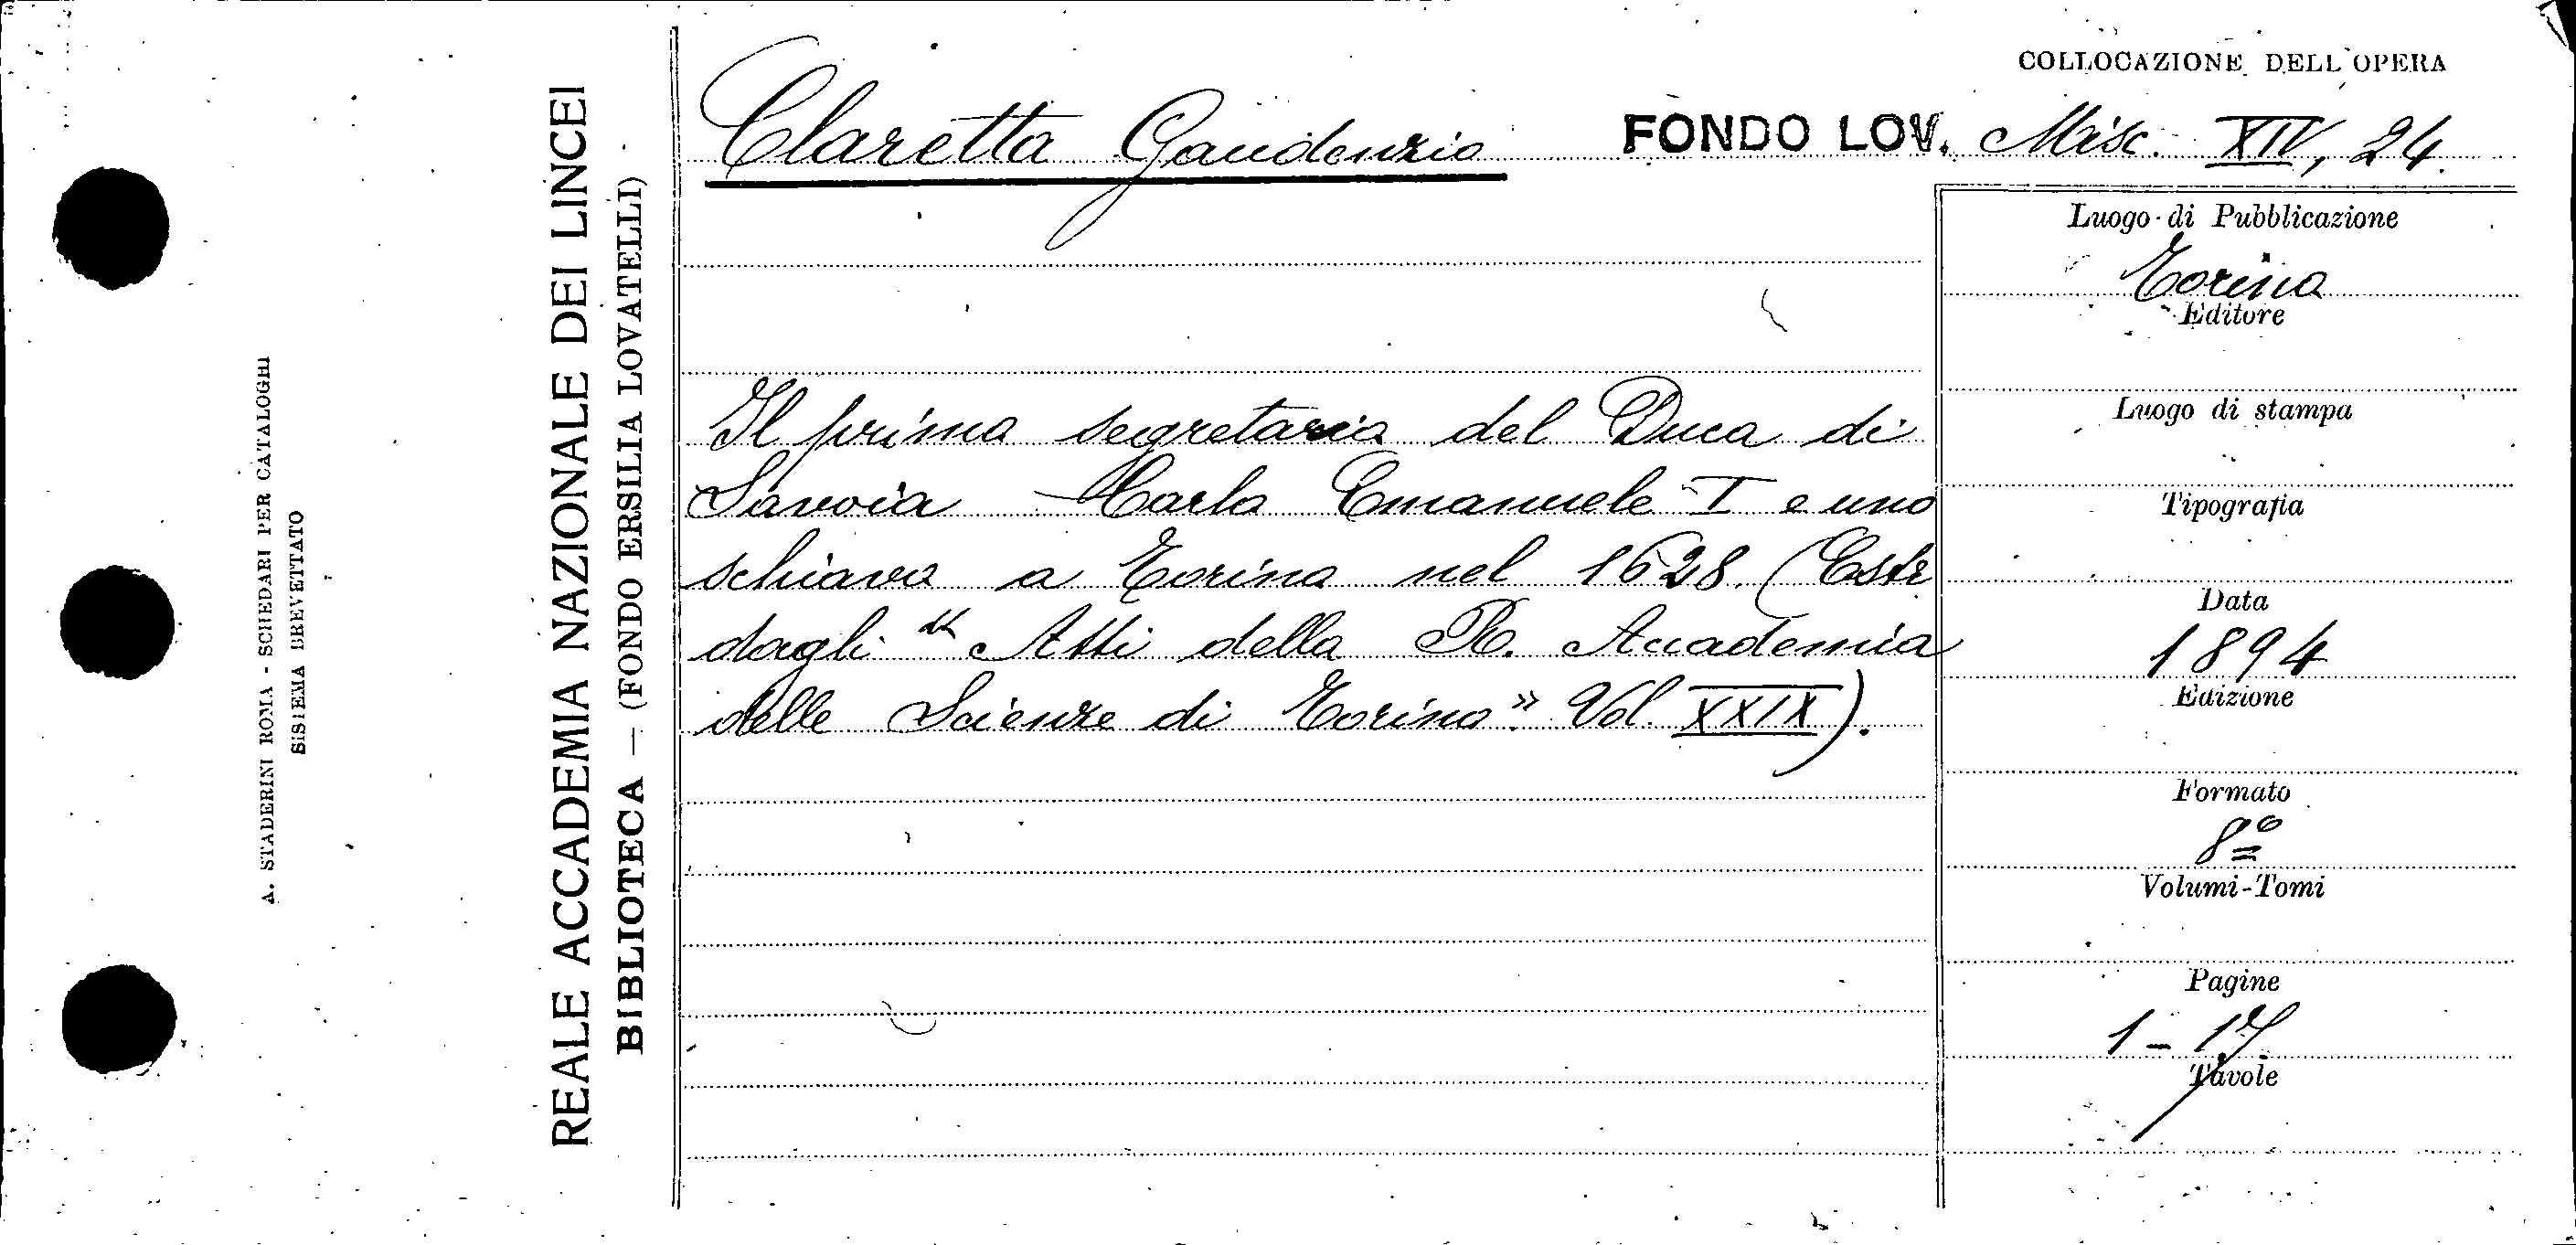 COLLOCAZIONE DELL'OPERA
Claretta Gaudenzio FONDO LOV. Misc. XIV, 24.
Il primo segretario del Duca di
Savoia Carlo Emanuele I e uno
schiavo a Torino nel 1628. (Estr
dagli "Atti della R. Accademia
delle Scienze di Torino" Vol. XXIX).
Luogo di Pubblicazione
Torino
Editore
Luogo di stampa
Tipografia
Data
1894
Edizione
Formato
8º
Volumi-Tomi
Pagine
1-17
Tavole
REALE ACCADEMIA NAZIONALE DEI LINCEI
BIBLIOTECA — (FONDO ERSILIA LOVATELLI)
A. STADERINI ROMA - SCHEDARI PER CATALOGHI
SISTEMA BREVETTATO